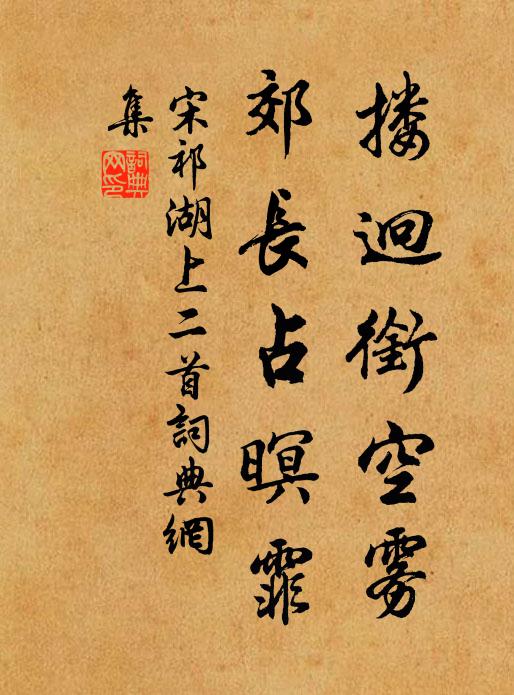 搂迥銜空雾
郊長占暝霏
宋祁湖上二首詞典網
集
詞典
网印